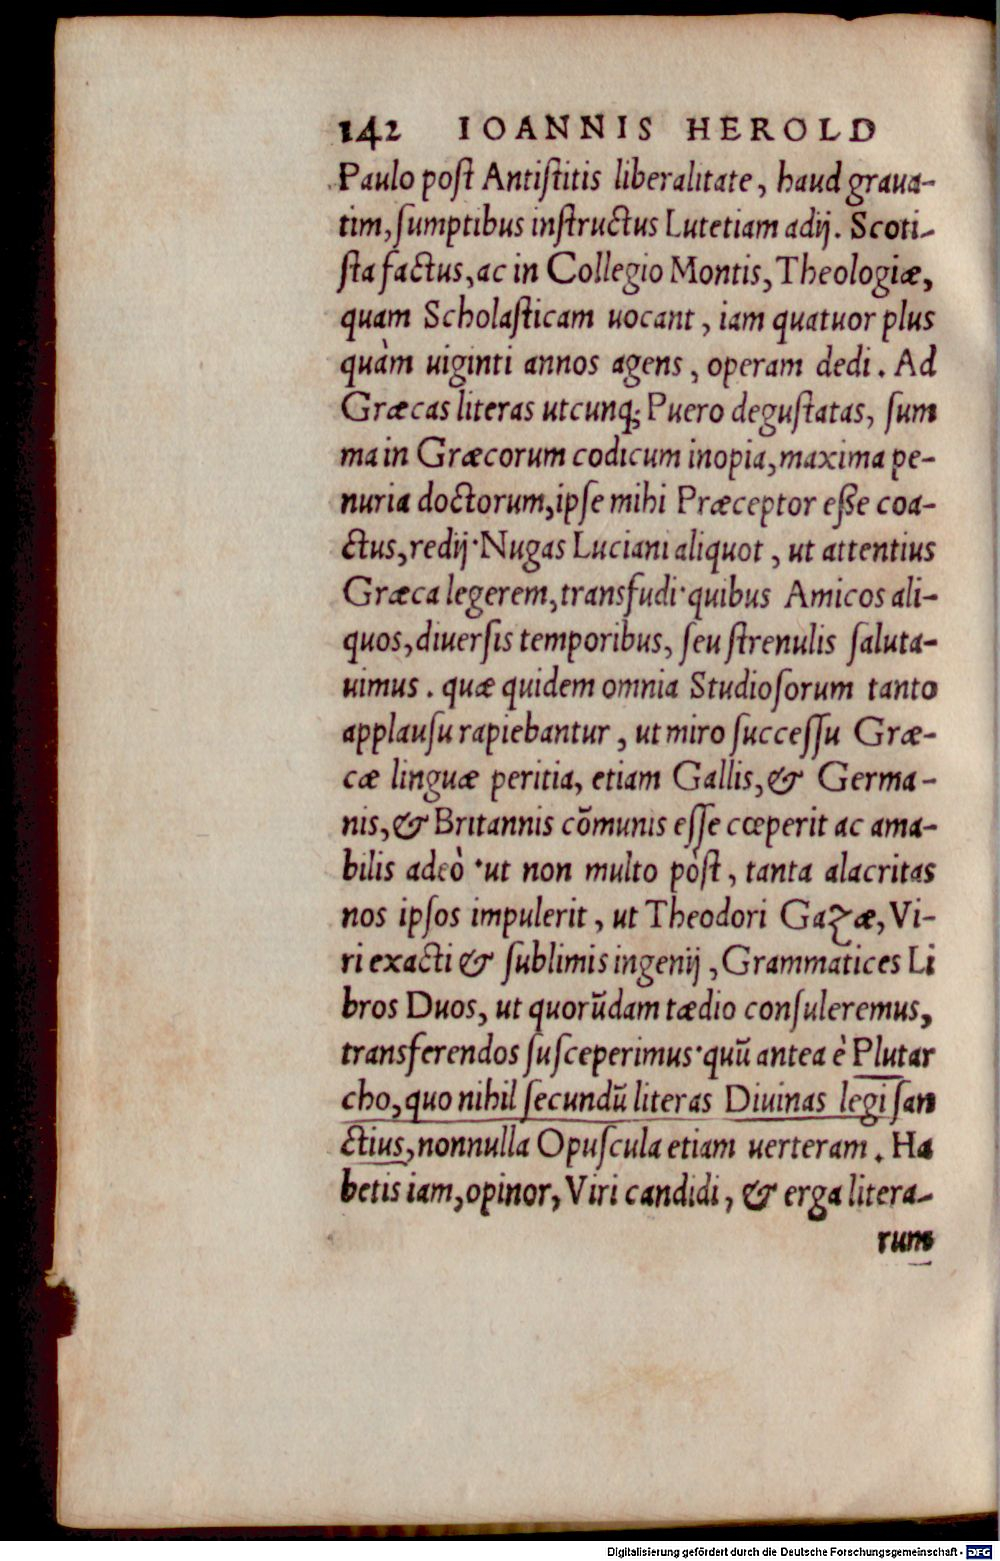 142 IOANNIS HEROLD
Paulo poſt Antiſtitis liberalitate, haud graua-
tim, ſumptibus inſtructus Lutetiam adij. Scoti-
ſta factus, ac in Collegio Montis, Theologiæ,
quam Scholaſticam uocant, iam quatuor plus
quàm uiginti annos agens, operam dedi. Ad
Græcas literas utcunq; Puero deguſtatas, ſum
ma in Græcorum codicum inopia, maxima pe-
nuria doctorum, ipſe mihi Præceptor eſſe coa-
ctus, redij· Nugas Luciani aliquot, ut attentius
Græca legerem, transfudi· quibus Amicos ali-
quos, diuerſis temporibus, ſeu ſtrenulis ſaluta-
uimus. quæ quidem omnia Studioſorum tanto
applauſu rapiebantur, ut miro ſucceſſu Græ-
cæ linguæ peritia, etiam Gallis, & Germa-
nis, & Britannis cõmunis eſſe cœperit ac ama-
bilis adeò· ut non multo pòſt, tanta alacritas
nos ipſos impulerit, ut Theodori Gazæ, Vi-
ri exacti & ſublimis ingenij, Grammatices Li
bros Duos, ut quorũdam tædio conſuleremus,
transferendos ſuſceperimus· quũ antea è Plutar
cho, quo nihil ſecundũ literas Diuinas legi ſan
ctius, nonnulla Opuſcula etiam uerteram. Ha
betis iam, opinor, Viri candidi, & erga litera-
rum
Digitalisierung gefördert durch die Deutsche Forschungsgemeinschaft - DFG